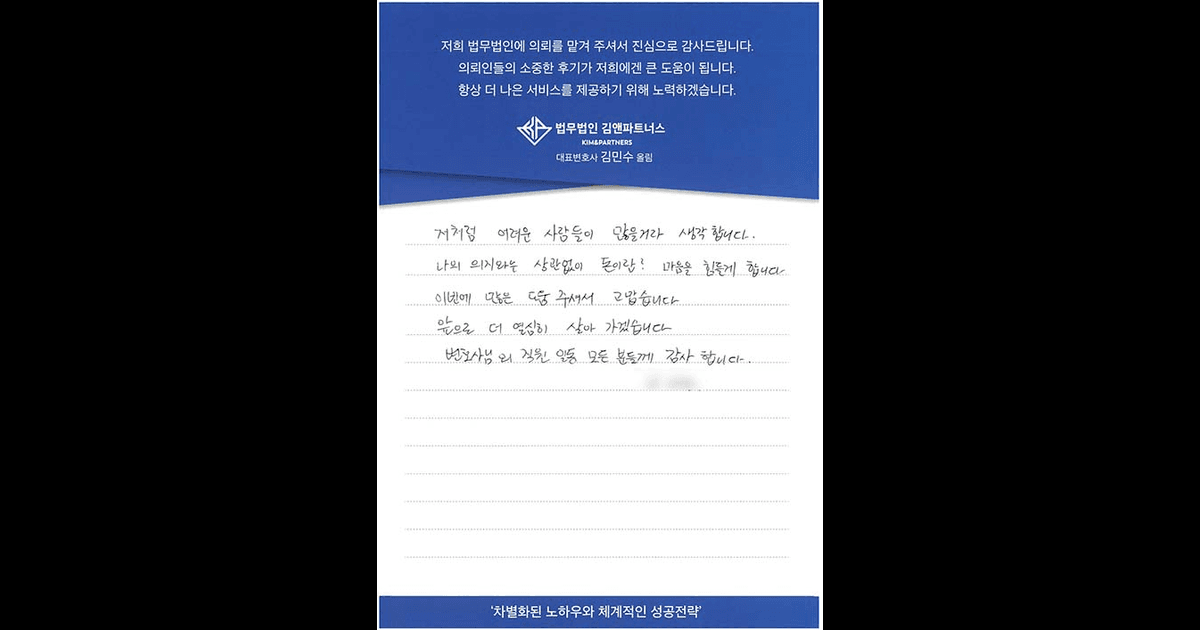 저희 법무법인에 의뢰를 맡겨 주셔서 진심으로 감사드립니다.
의뢰인들의 소중한 후기가 저희에겐 큰 도움이 됩니다.
항상 더 나은 서비스를 제공하기 위해 노력하겠습니다.
법무법인 김앤파트너스
KIM&PARTNERS
대표변호사 김민수 올림
저처럼 어려운 사람들이 많을거라 생각 합니다.
나의 의지와는 상관없이 돈이란? 마음을 힘들게 합니다
이번에 많은 도움 주셔서 고맙습니다
앞으로 더 열심히 살아 가겠습니다
변호사님 외 직원 일동 모든 분들께 감사 합니다.
'차별화된 노하우와 체계적인 성공전략'